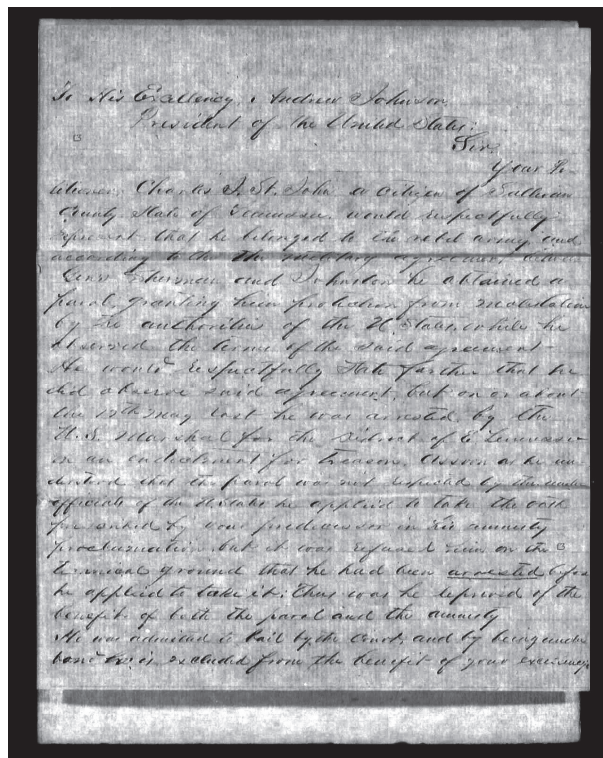 To His Excellency, Andrew Johnson
President of the United States:
Sir
Your Pe-
titioner Charles J. St. John a citizen of Sullivan
County State of Tennessee would respectfully
represent that he belonged to the rebel army and
according to the military agreement
Genls Sherman and Johnston he obtained a
parol, granting him protection from molestation
by the authorities of the U. States while he
observed the terms of the said agreement-
He would respectfully State further that he
did observe said agreement, but on or about
the 12th May last he was arrested by the
U.S. Marshal for the District of E Tennessee
on an indictment for treason. As soon as he un-
derstood that the parol was not respected by the
officials of the he applied to take the oath
prescribed by your predecessor in his amnesty
proclamation, but it was refused him on the
technical ground that he had been arrested before
he applied to take it: thus was he deprived of the
benefit of both the parol and the amnesty
He was admitted to bail by the Court, and by being under
bond is excluded from the benefit of your excellency's